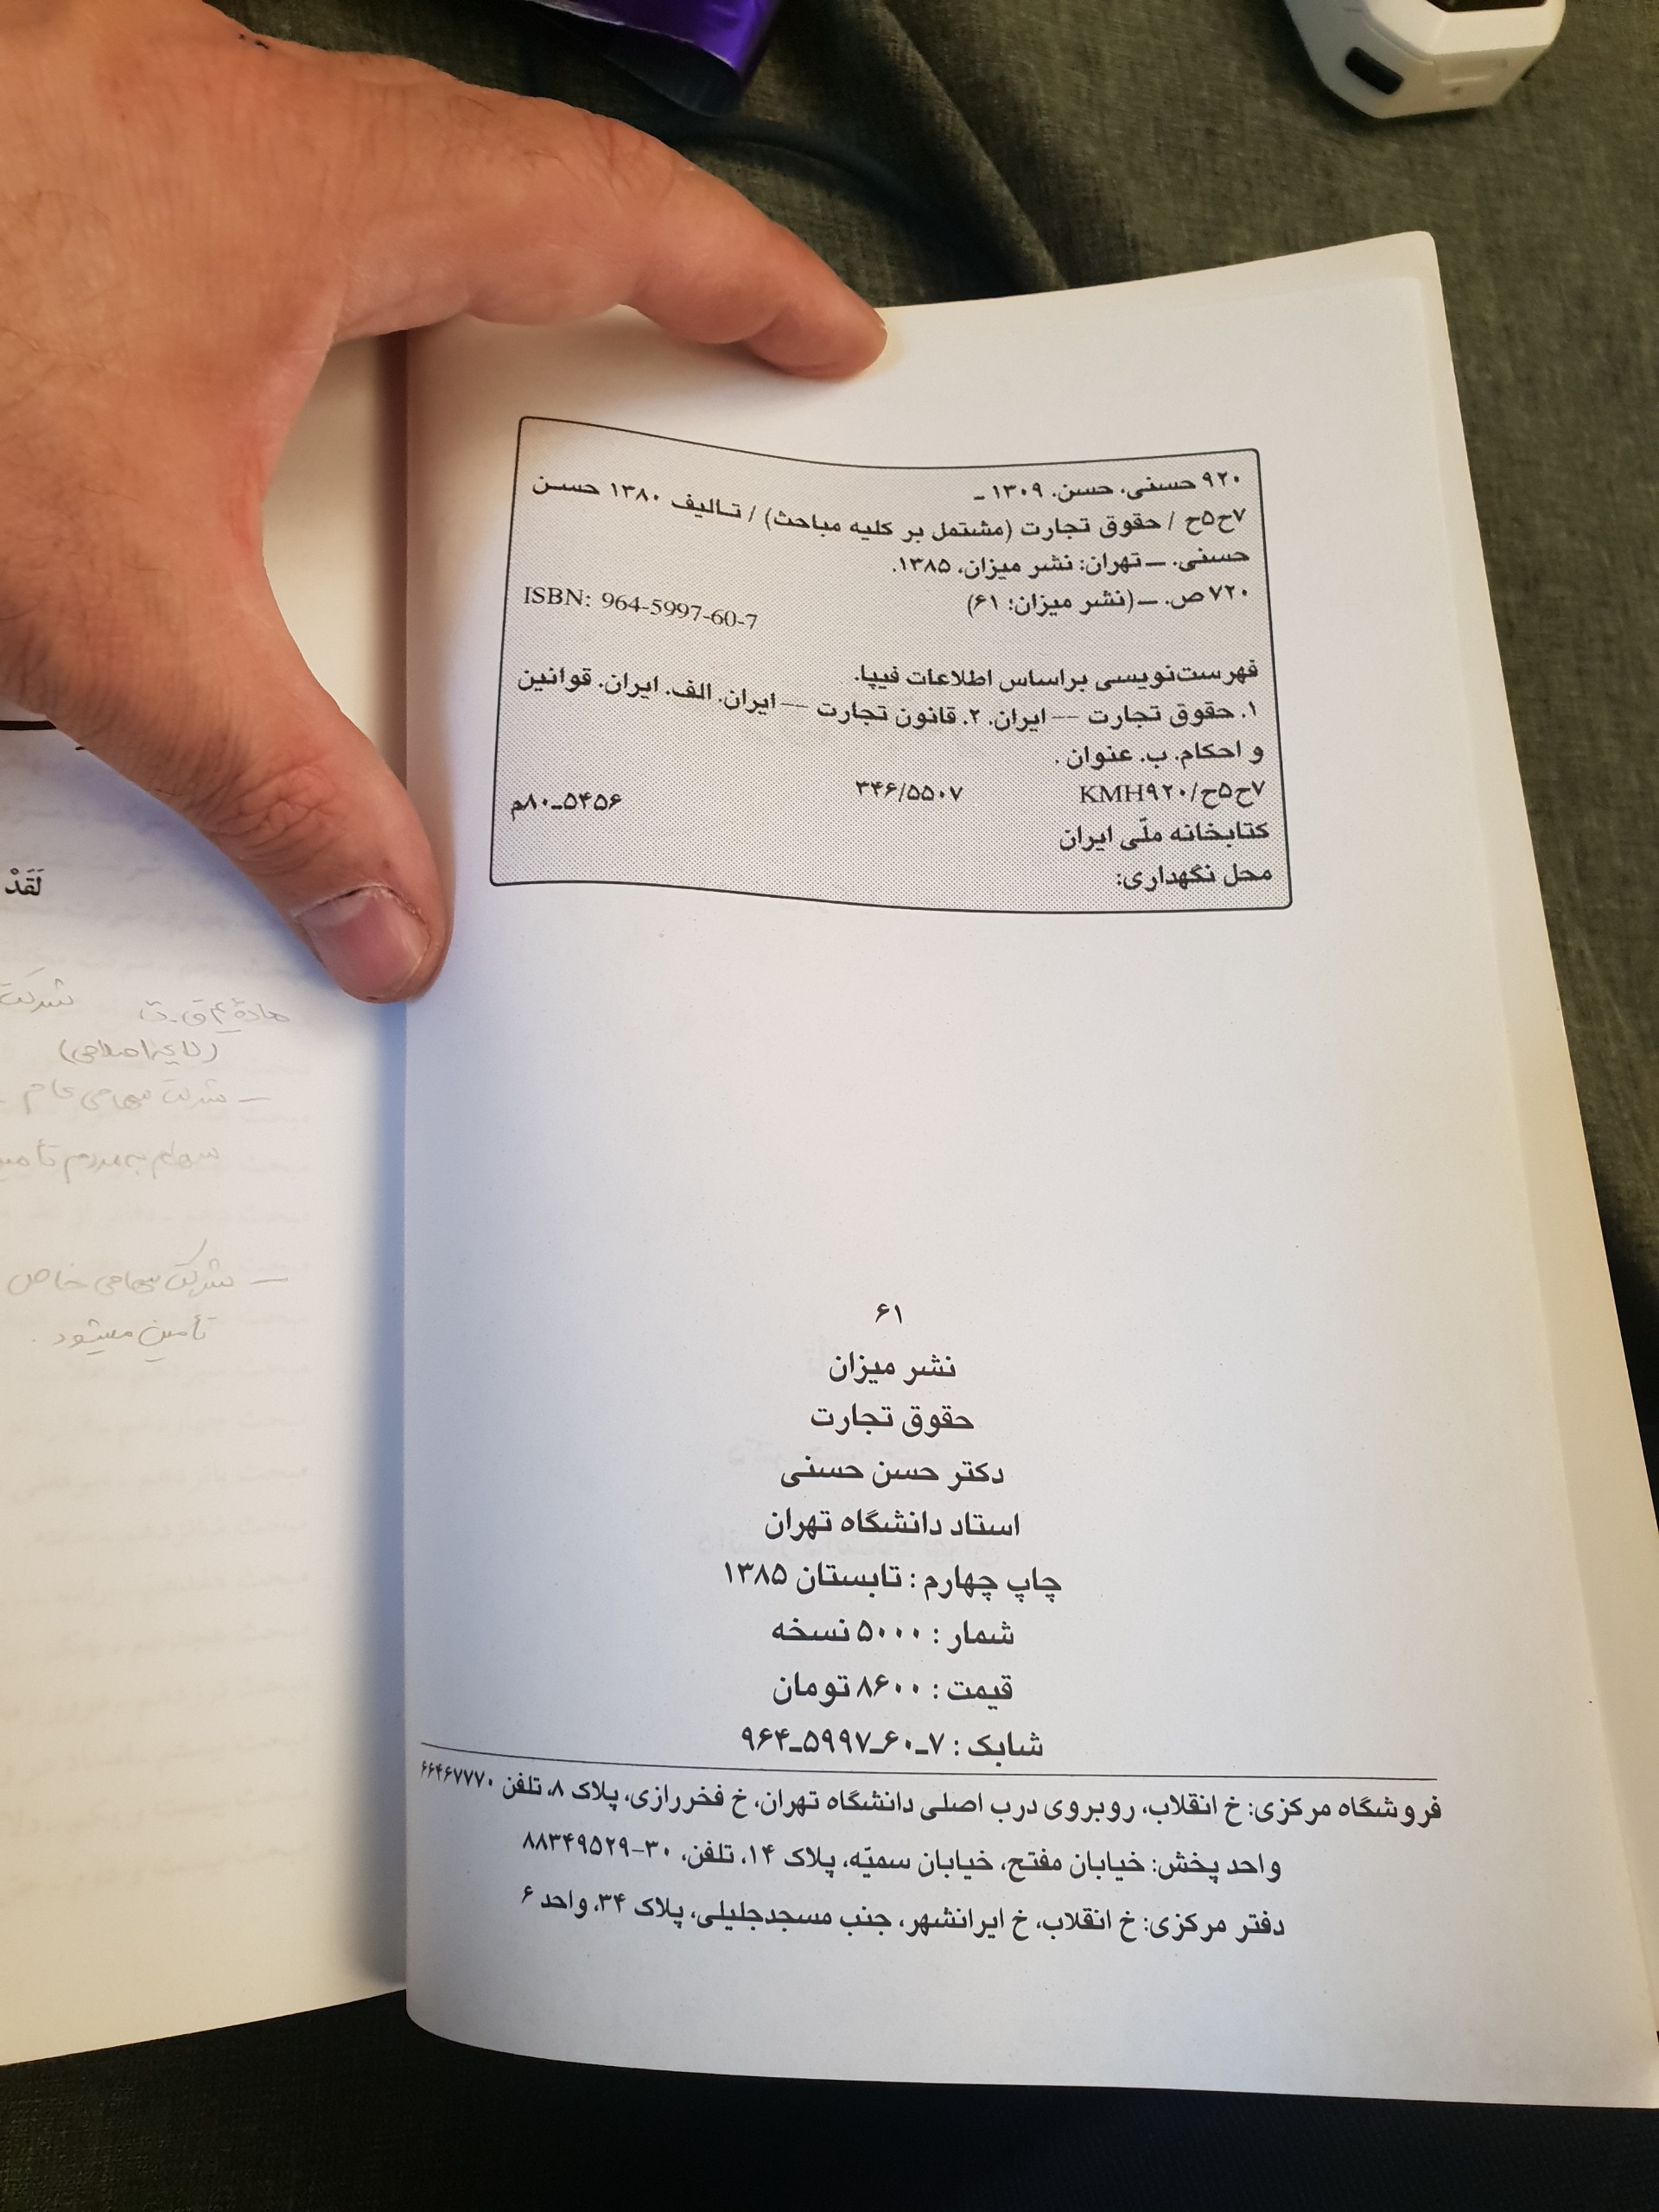 ۹۲۰ حسنی، حسن. ۱۳۰۹ ـ
۷ح۵ح / حقوق تجارت (مشتمل بر کلیه مباحث) / تـالیف ۱۳۸۰ حسـن
حسنی. ـ تهران: نشر میزان، ۱۳۸۵.
۷۲۰ ص. ـ (نشر میزان: ۶۱) ISBN: 964-5997-60-7
فهرست‌نویسی براساس اطلاعات فیپا.
۱. حقوق تجارت -- ایران. ۲. قانون تجارت -- ایران. الف. ایران. قوانین
و احکام. ب. عنوان .
۷ح۵ح/KMH۹۲۰ ۳۴۶/۵۵۰۷ ۵۴۵۶ـ۸۰م
کتابخانه ملّی ایران
محل نگهداری:
۶۱
نشر میزان
حقوق تجارت
دکتر حسن حسنی
استاد دانشگاه تهران
چاپ چهارم : تابستان ۱۳۸۵
شمار : ۵۰۰۰ نسخه
قیمت : ۸۶۰۰ تومان
شابک : ۷ـ۶۰ـ۵۹۹۷ـ۹۶۴
فروشگاه مرکزی: خ انقلاب، روبروی درب اصلی دانشگاه تهران، خ فخررازی، پلاک ۸، تلفن ۶۶۴۶۷۷۷۰
واحد پخش: خیابان مفتح، خیابان سمیّه، پلاک ۱۴، تلفن، ۳۰-۸۸۳۴۹۵۲۹
دفتر مرکزی: خ انقلاب، خ ایرانشهر، جنب مسجدجلیلی، پلاک ۳۴، واحد ۶
لَقَدْ
مادهٔ ۴ ق.ت شرکت
(لایحه اصلاحی)
– شرکت سهامی عام
سهام به مردم
– شرکت سهامی خاص
تأمین میشود .